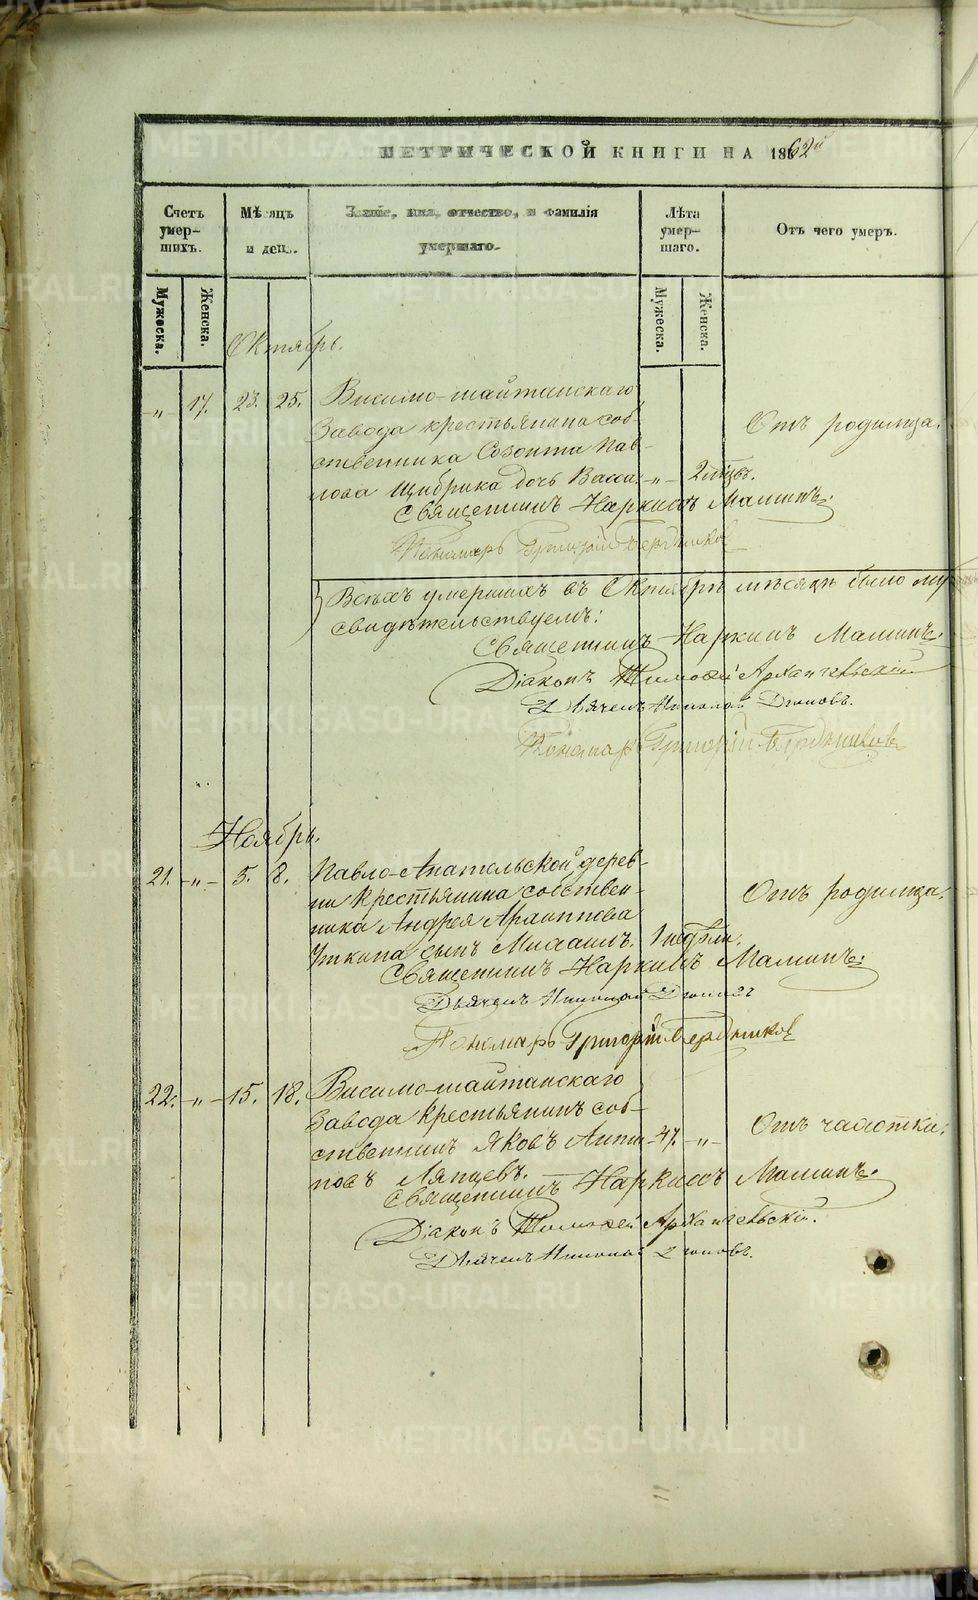 МЕТРИЧЕСКОЙ КНИГИ НА 1862й
Счетъ умер-шихъ.
Мѣсяцъ и день.
Званіе, имя, отчество, и фамилія умершаго.
Лѣта умер-шаго.
Отъ чего умеръ.
Мужеска.
Женска.
Мужеска.
Женска.
Октябрь.
„ 17. 23. 25. Висимо-шайтанскаго
Завода крестьянина соб-
Отъ родимца.
ственника Созонта Пав-
лова дочь „ 2
Священникъ Наркисъ Маминъ.
Пономарь Григорій Бердниковъ
Всѣхъ умершихъ въ Октябрѣ мѣсяцѣ было му
свидѣтельствуемъ:
Священникъ Наркисъ Маминъ.
Діаконъ Тимофей Архангельскій
Дьячекъ Николай
Пономарь Григорій Бердниковъ
Ноябрь.
21. „ 5. 8. Павло-Анатольской дерев-
ни крестьянина собствен-
Отъ родимца.
ника Андрея Архиппова
Уткина сынъ Михаилъ. 1 недѣли.
Священникъ Наркисъ Маминъ.
Дьячекъ Николай
Пономарь Григорій Бердниковъ
22. „ 15. 18. Висимо-шайтанскаго
Завода крестьянинъ соб-
ственникъ Яковъ Анти- 47. „ Отъ чахотки.
повъ Ляпцевъ.
Священникъ Наркисъ Маминъ.
Діаконъ Тимофей Архангельскій.
Дьячекъ Николай
METRIKI.GASO-URAL.RU